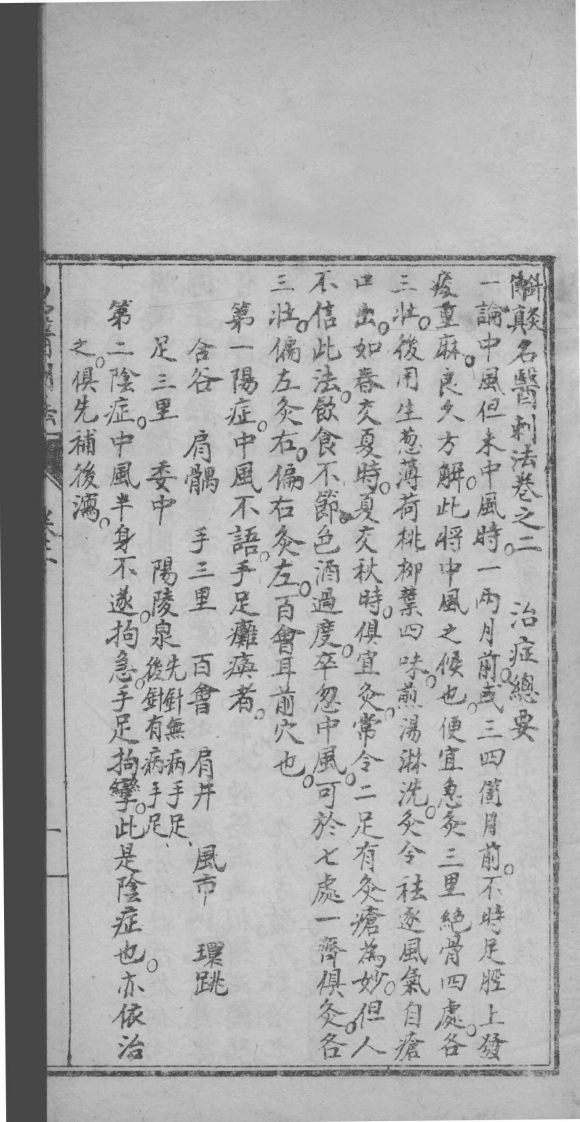 名醫刺法卷之二　治症總要
一論中風但未中風時。一兩月前。或三四箇月前。不時足脛上發
痠重麻。良久方解。此將中風之候也。便宜急灸三里絕骨四處。各
三壯。後用生葱薄荷桃柳葉四味。煎湯淋洗。灸令祛逐風氣自瘡
口出。如春交夏時。夏交秋時。俱宜灸。常令二足有灸瘡為妙。但人
不信此法。飲食不節。色酒過度。卒忽中風。可於七處一齊俱灸。各
三壯。偏左灸右。偏右灸左。百會耳前穴也。
第一陽症。中風不語。手足癱瘓者。
合谷　肩髃　手三里　百會　肩井　風市　環跳
足三里　委中　陽陵泉先針無病手足、後針有病手足、
第二陰症。中風半身不遂。拘急。手足拘攣。此是陰症也。亦依治
之。俱先補後瀉。